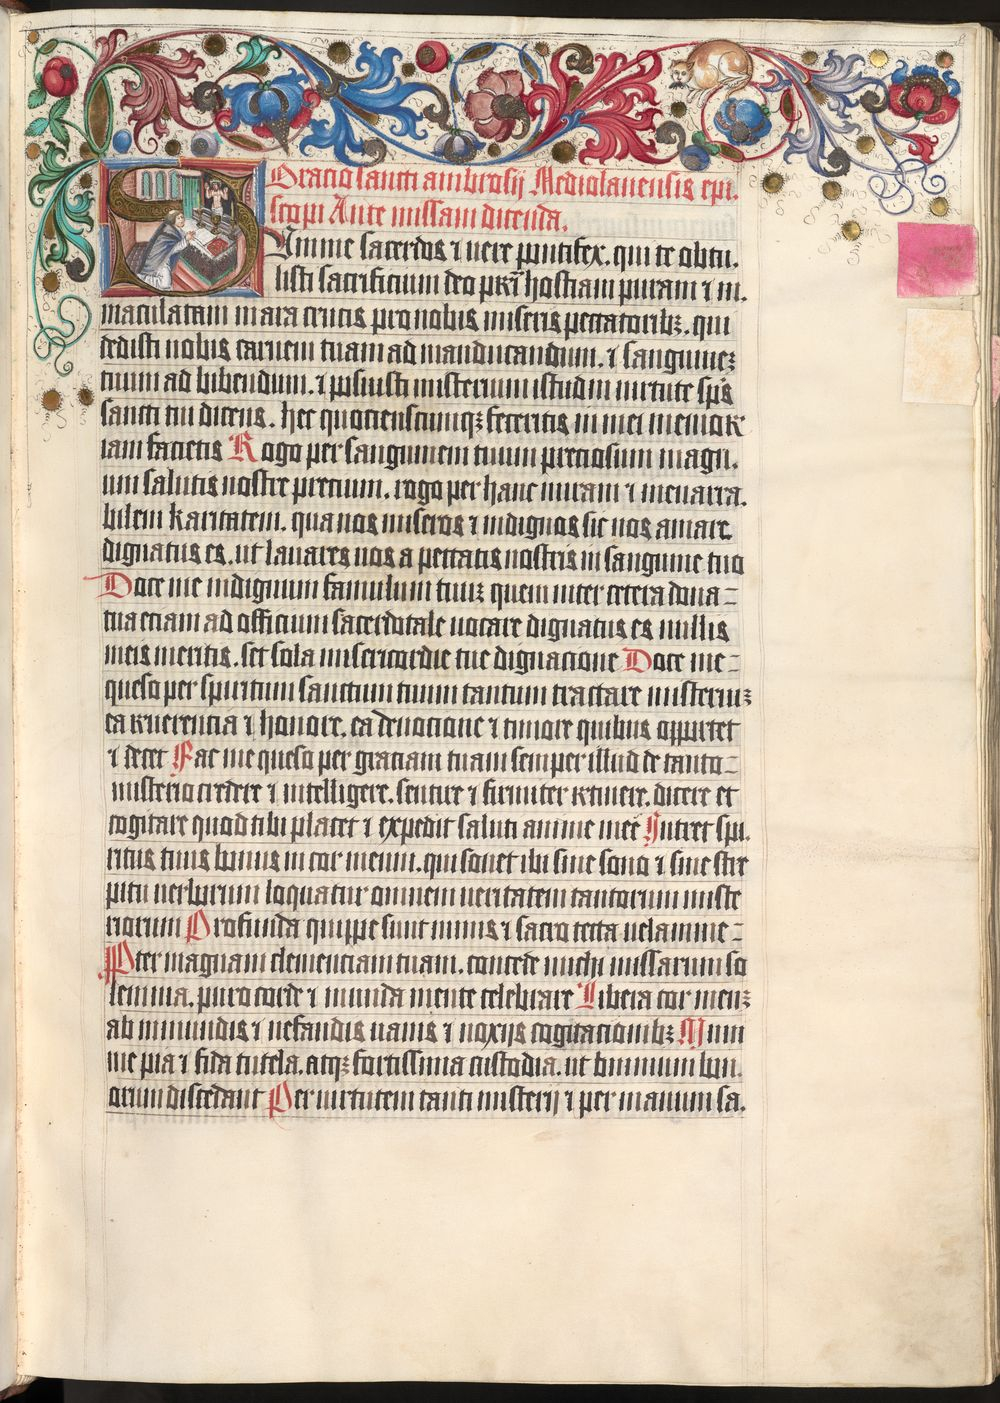 Oracio sancti ambrosij Mediolanensis epi.
scopi Ante missam dicenda.
Summe sacerdos ⁊ uere pontifex. qui te obtu.
listi sacrificium deo pr̄i hostiam puram ⁊ in.
maculatam in ara crucis pro nobis miseris peccatoribꝫ. qui
dedisti nobis carnem tuam ad manducandum. ⁊ sanguineꝫ
tuum ad bibendum. ⁊ posuisti misterium istud in uirtute sp̄s
sancti tui dicens. hec quocienscumqꝫ feceritis in mei memor
iam facietis Rogo per sanguinem tuum preciosum magn.
um salutis nostre precium. rogo per hanc miram ⁊ inenarra.
bilem karitatem. qua nos miseros ⁊ indignos sic nos amare
dignatus es. ut lauares nos a peccatis nostris in sanguine tuo
Doce me indignum famulum tuuꝫ quem inter cetera dona-
tua eciam ad officium sacerdotale uocare dignatus es nullis
meis meritis. set sola misericordie tue dignacione Doce me-
queso per spiritum sanctum tuum tantum tractare misteriuꝫ
ea reuerencia ⁊ honore. ea deuocione ⁊ timore quibus opportet
⁊ decet Fac me queso per graciam tuam semper illud de tanto-
misterio credere ⁊ intelligere. sentire ⁊ firmiter retinere. dicere et
cogitare quod tibi placet ⁊ expedit saluti anime mee Intret spi.
ritus tuus bonus in cor meum. qui sonet ibi sine sono ⁊ sine stre
pitu uerborum loquatur omnem ueritatem tantorum miste
riorum Profunda quippe sunt nimis ⁊ sacro tecta uelamine-
Pter magnam clemenciam tuam. concede michi missarum so
lemnia. puro corde ⁊ munda mente celebrare Libera cor meuꝫ
ab inmundis ⁊ nefandis uanis ⁊ noxijs cogitacionibꝫ Muni
me pia ⁊ fida tutela. atqꝫ fortissima custodia. ut
discedant Per uirtutem tanti misterij ⁊ per manum sa.